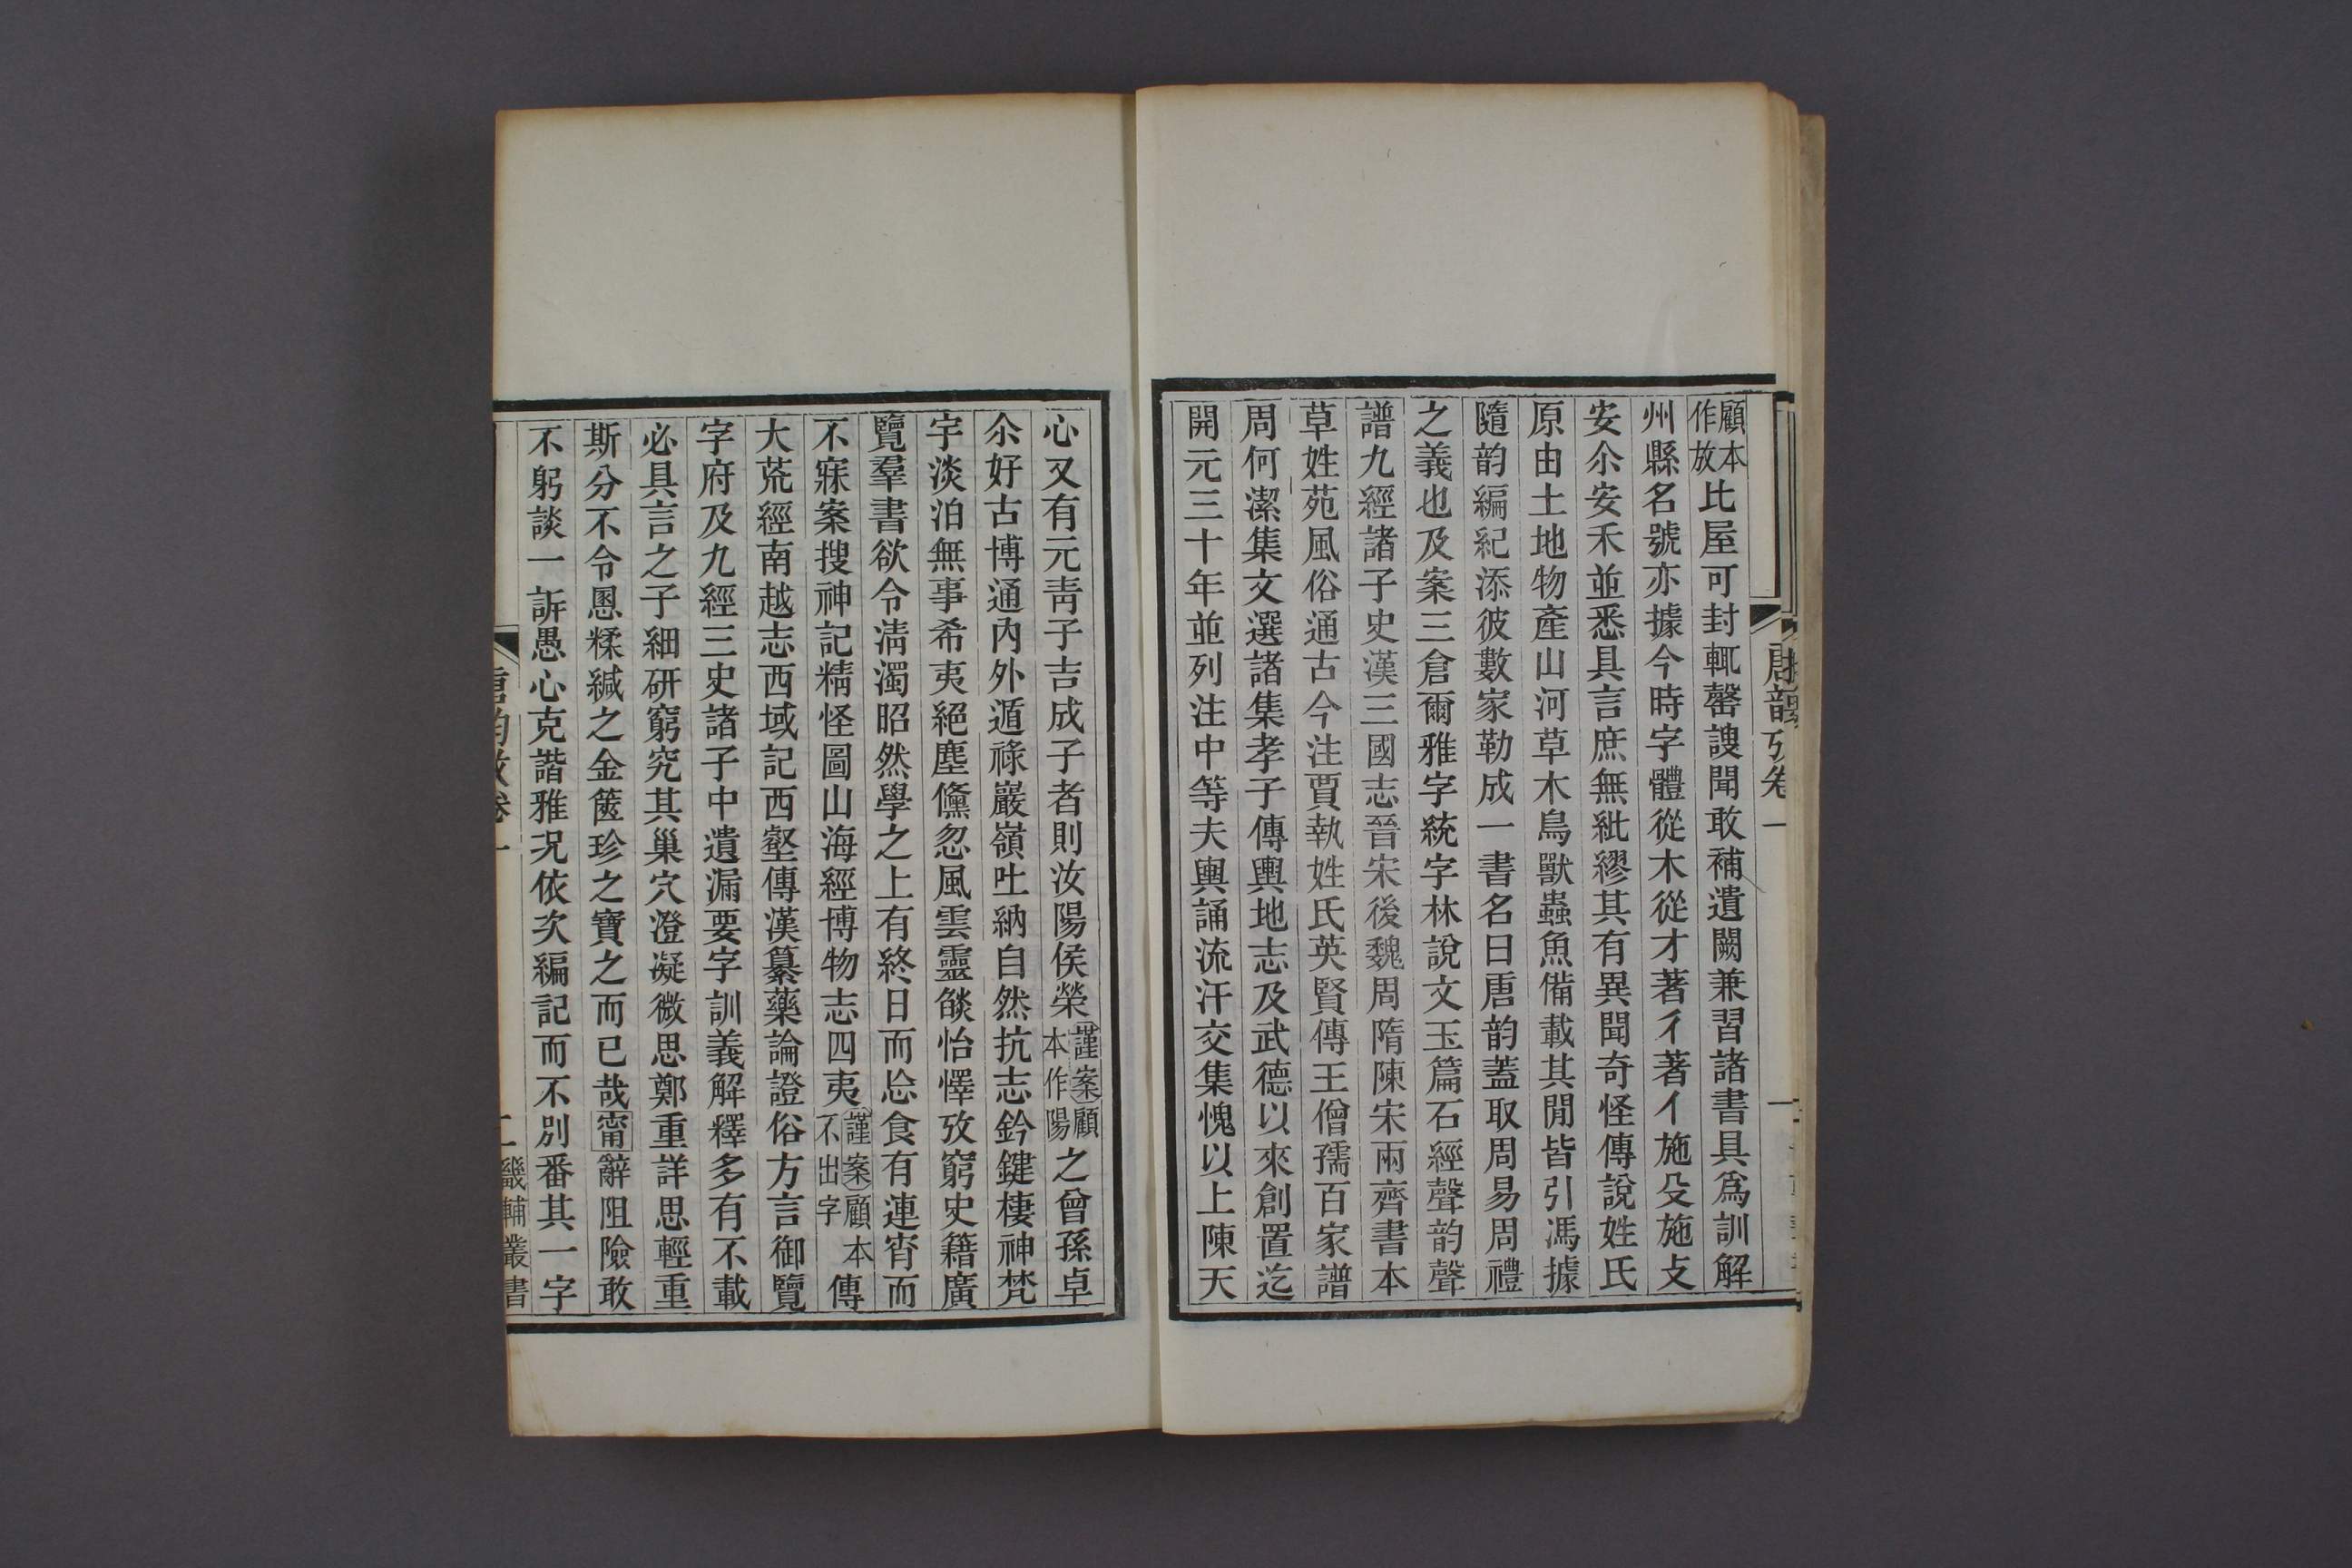 唐韵攷卷一
一
顧本作放比屋可封輒罄謏聞敢補遺闕兼習諸書具爲訓解
州縣名號亦據今時字體從木從才著彳著亻施殳施攴
安尒安禾並悉具言庶無紕繆其有異聞奇怪傳說姓氏
原由土地物產山河草木鳥獸蟲魚備載其閒皆引馮據
隨韵編紀添彼數家勒成一書名曰唐韵蓋取周易周禮
之義也及案三倉爾雅字統字林說文玉篇石經聲韵聲
譜九經諸子史漢三國志晉宋後魏周隋陳宋兩齊書本
草姓苑風俗通古今注賈執姓氏英賢傳王僧孺百家譜
周何潔集文選諸集孝子傳輿地志及武德以來創置迄
開元三十年並列注中等夫輿誦流汗交集愧以上陳天
心又有元青子吉成子者則汝陽侯榮謹案顧本作陽之曾孫卓
尒好古博通內外遁祿巖嶺吐納自然抗志鈐鍵棲神梵
宇淡泊無事希夷絕塵儵忽風雲靈皦怡懌攷窮史籍廣
覽羣書欲令清濁昭然學之上有終日而忩食有連宵而
不寐案搜神記精怪圖山海經博物志四夷謹案顧本不出字傳
大荒經南越志西域記西壑傳漢纂藥論證俗方言御覽
字府及九經三史諸子中遺漏要字訓義解釋多有不載
必具言之子細研窮究其巢穴澄凝微思鄭重詳思輕重
斯分不令慁糅緘之金篋珍之寶之而已哉甯辭阻險敢
不躬談一訴愚心克諧雅况依次編記而不別番其一字
唐韵攷卷一
二
畿輔叢書